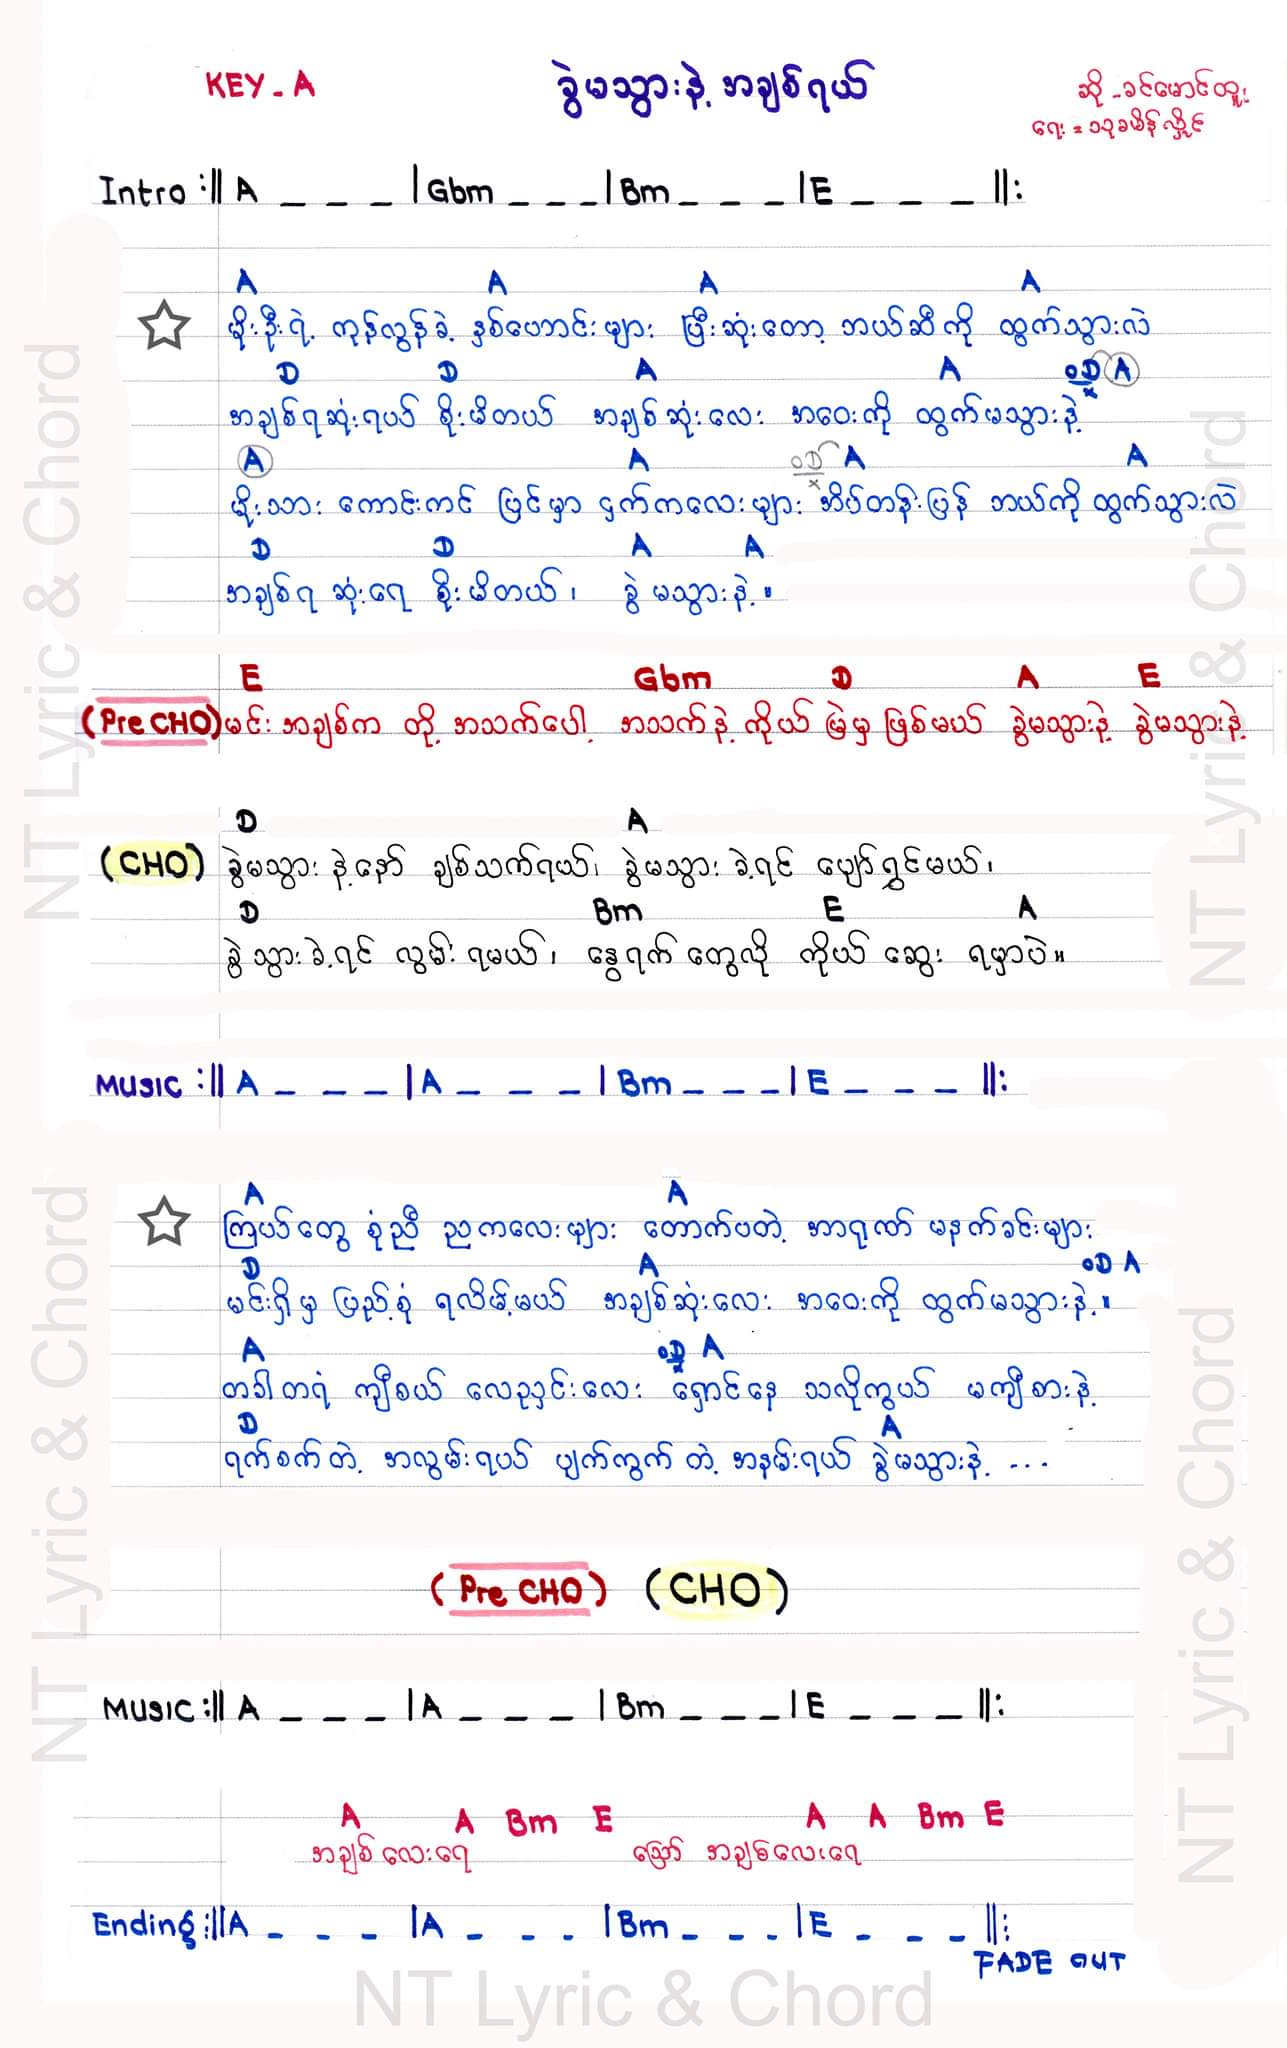 KEY - A
ခွဲမသွားနဲ့ အချစ်ရယ်
ဆို - ခင်မောင်ထူး
ရေး = သုခမိန်လှိုင်
Intro :|| A _ _ _ | Gbm _ _ _ | Bm _ _ _ | E _ _ _ ||:
A A A A
မိုးဦးရဲ့ ကုန်လွန်ခဲ့ နှစ်ပေါင်းများ ပြီးဆုံးတော့ ဘယ်ဆီကို ထွက်သွားလဲ
D D A A oD A
အချစ်ရဆုံးရယ် စိုးမိတယ် အချစ်ဆုံးလေး အဝေးကို ထွက်မသွားနဲ့
A A oD A A
မိုးသား ကောင်းကင် ပြင်မှာ ငှက်ကလေးများ အိပ်တန်းပြန် ဘယ်ကို ထွက်သွားလဲ
D D A A
အချစ်ရ ဆုံးရေ စိုးမိတယ်၊ ခွဲမသွားနဲ့။
E Gbm D A E
(Pre CHO) မင်း အချစ်က တို့ အသက်ပေါ့ အသက်နဲ့ ကိုယ် မြဲမှ ဖြစ်မယ် ခွဲမသွားနဲ့ ခွဲမသွားနဲ့
D A
(CHO) ခွဲမသွား နဲ့နော် ချစ်သက်ရယ်၊ ခွဲမသွား ခဲ့ရင် ပျော်ရွှင်မယ်၊
D Bm E A
ခွဲသွားခဲ့ရင် လွမ်းရမယ်၊ နွေရက်တွေလို ကိုယ် ဆွေး ရမှာပဲ။
MUSIC :|| A _ _ _ | A _ _ _ | Bm _ _ _ | E _ _ _ ||:
A A
ကြယ်တွေ စုံညီ ညကလေးများ တောက်ပတဲ့ အာရုဏ် မနက်ခင်းများ
D A oD A
မင်းရှိမှ ပြည့်စုံ ရလိမ့်မယ် အချစ်ဆုံးလေး အဝေးကို ထွက်မသွားနဲ့။
A oD A
တခါတရံ ကျီစယ် လေညှင်းလေး ရှောင်နေ သလိုကွယ် မကျီစားနဲ့
D A
ရက်စက်တဲ့ အလွမ်းရယ် ပျက်ကွက်တဲ့ အနမ်းရယ် ခွဲမသွားနဲ့ ...
(Pre CHO) (CHO)
MUSIC :|| A _ _ _ | A _ _ _ | Bm _ _ _ | E _ _ _ ||:
A A Bm E A A Bm E
အချစ်လေးရေ ဩော် အချစ်လေးရေ
Ending :|| A _ _ _ | A _ _ _ | Bm _ _ _ | E _ _ _ ||:
FADE OUT
NT Lyric & Chord
NT Lyric & Chord
NT Lyric & Chord
NT Lyric & Chord
NT Lyric & Chord